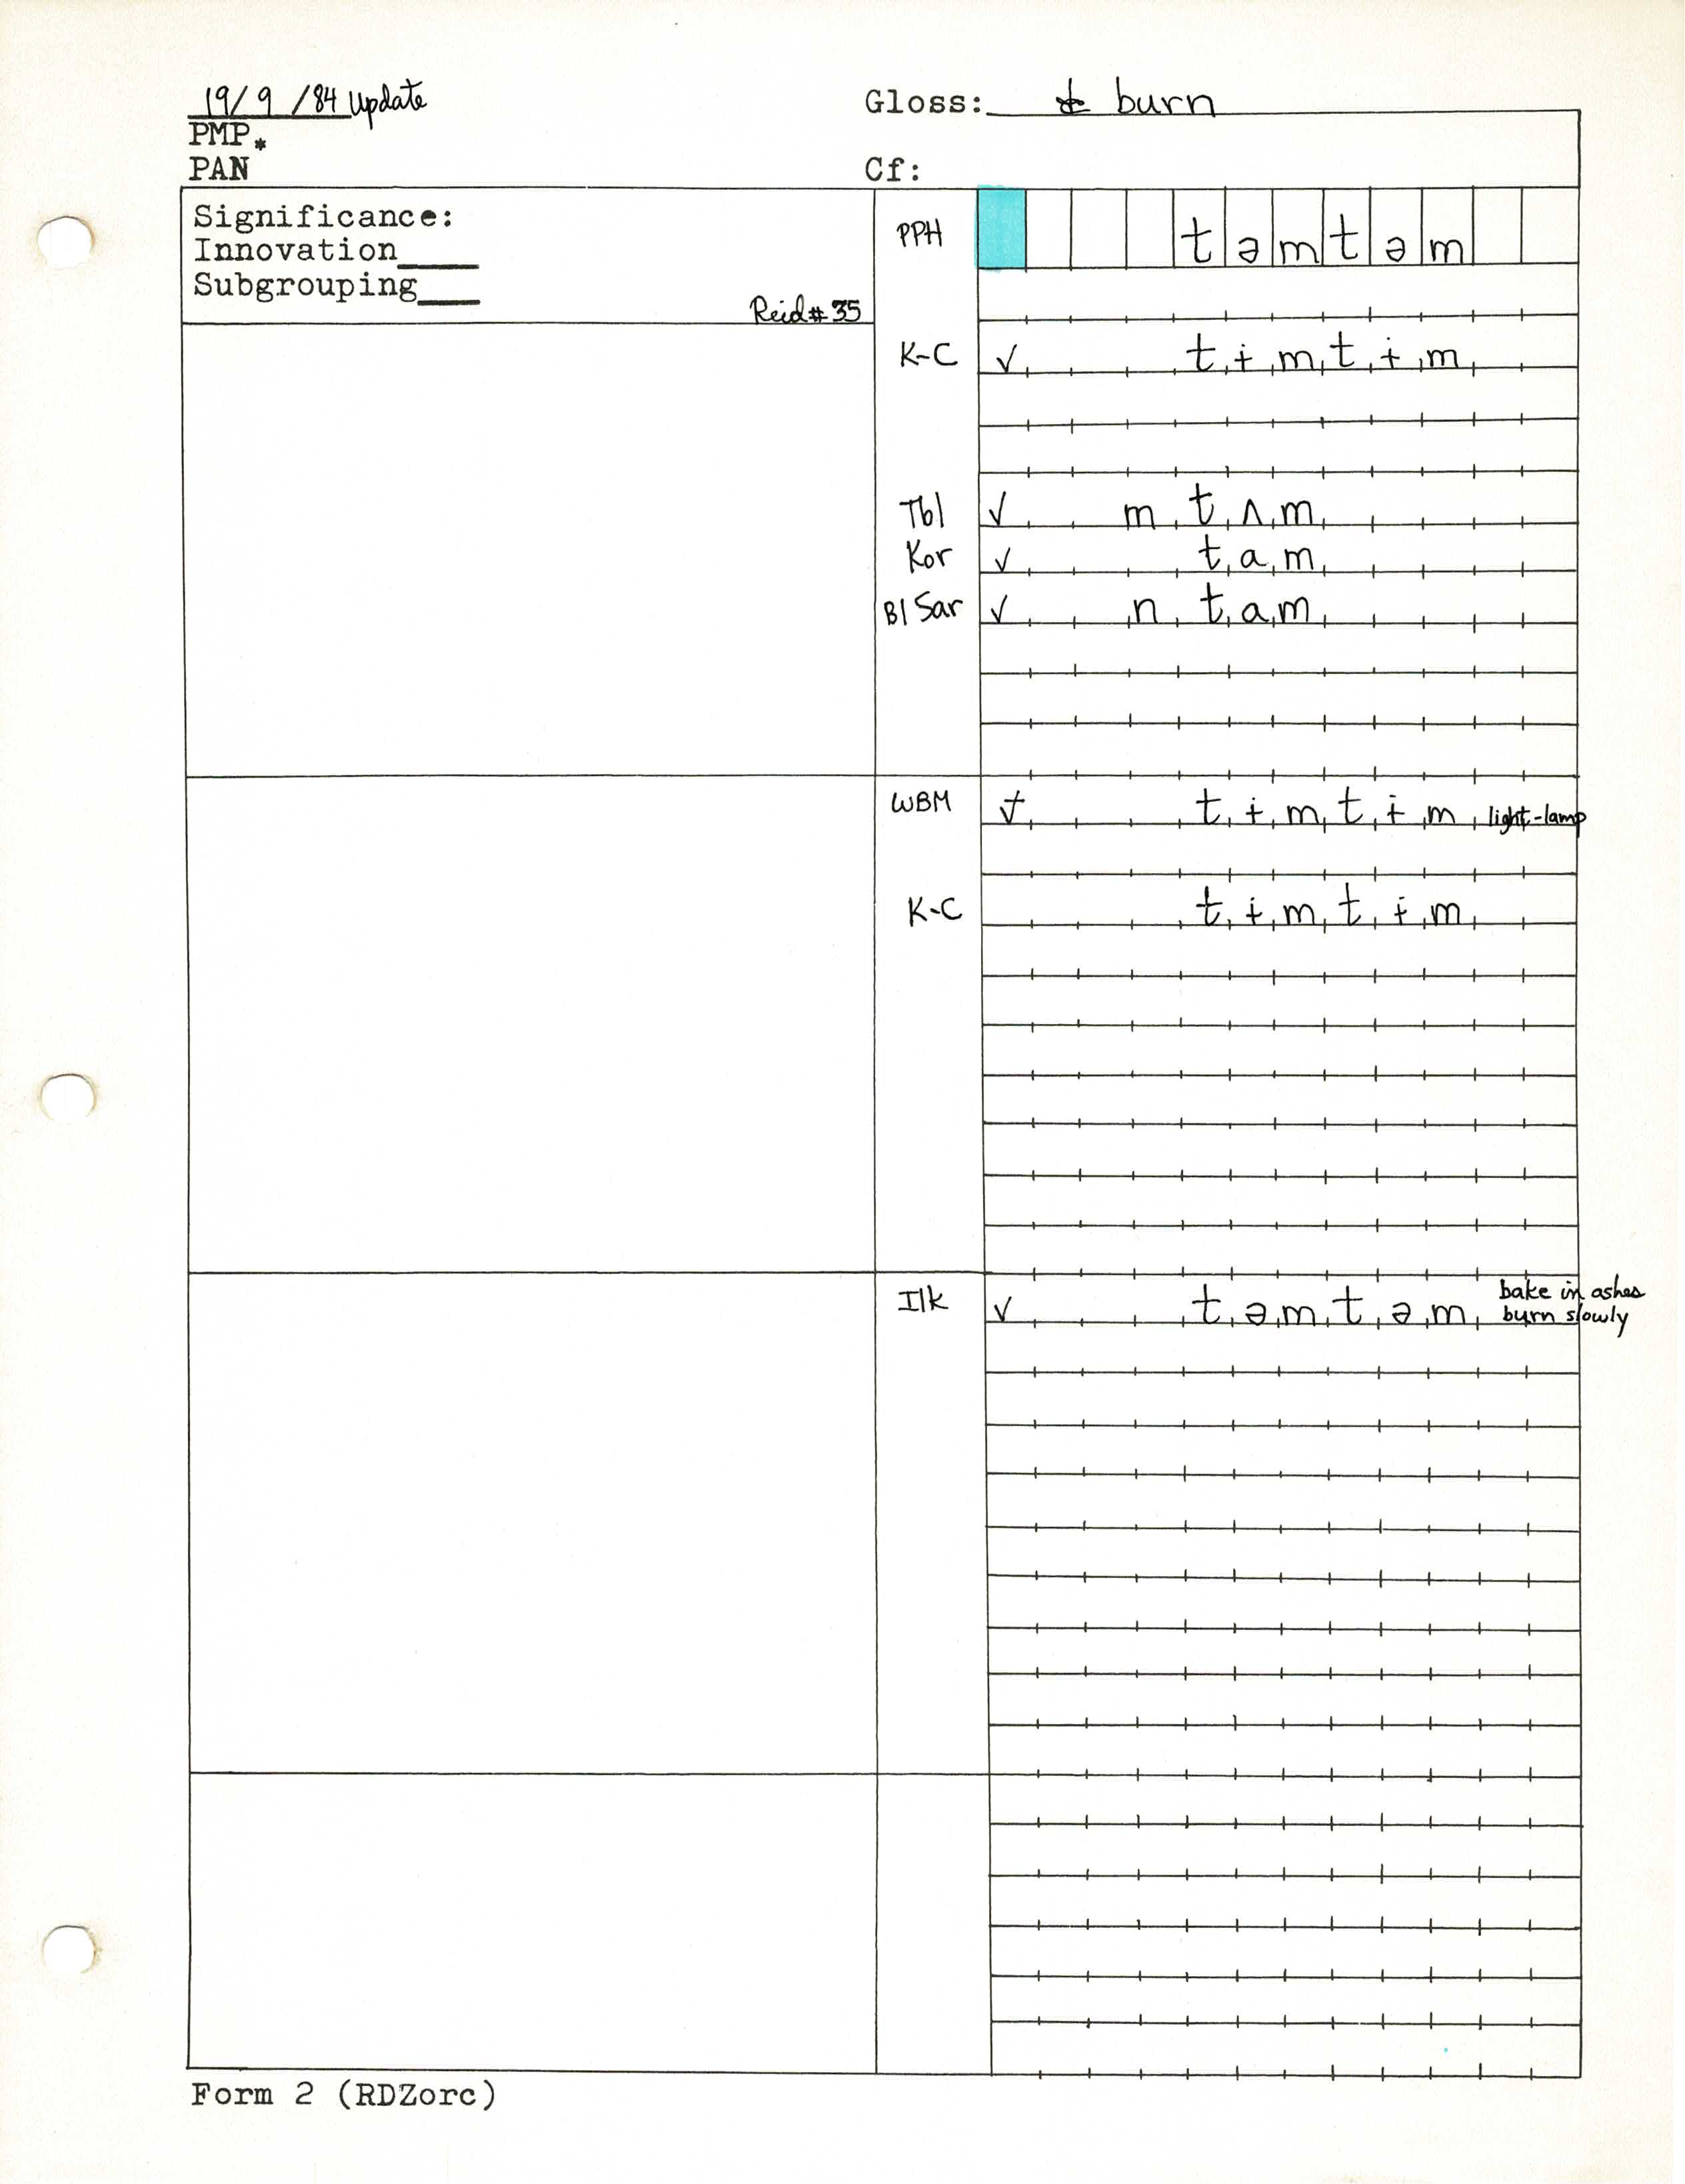 19/9/84 Update
Gloss: burn
PMP *
PAN
Cf:
Significance:
Innovation____
Subgrouping____
Reid # 35
PPH təmtəm
K-C ✓ tɨmtɨm
Tbl ✓ mtʌm
Kor ✓ tam
Bl Sar ✓ ntam
WBM ✓ tɨmtɨm light-lamp
K-C tɨmtɨm
Ilk ✓ təmtəm bake in ashes
burn slowly
Form 2 (RDZorc)